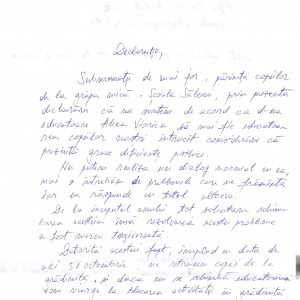 Declarație,
Subsemnații de mai jos, părinții copiilor
de la grupa mică, Școala Sălcii, prin prezenta
declarăm că nu suntem de acord ca d-na
educatoare Alexa Viorica să mai fie educatoarea
copiilor noștri întrucât considerăm că
prezintă grave deficiențe psihice.
Nu putem realiza un dialog normal cu ea,
mai o întrebăm de problemele care ne frământă
iar ea răspunde cu totul altceva.
De la începutul anului tot solicităm schim-
barea acesteia însă rezolvarea acestei probleme
a fost mereu tergiversată.
Datorită acestui fapt, începând cu data de
azi octombrie ne retragem copiii de la
grădiniță, și dacă nu se schimbă educatoarea
vom merge la blocarea activității în grădiniță,